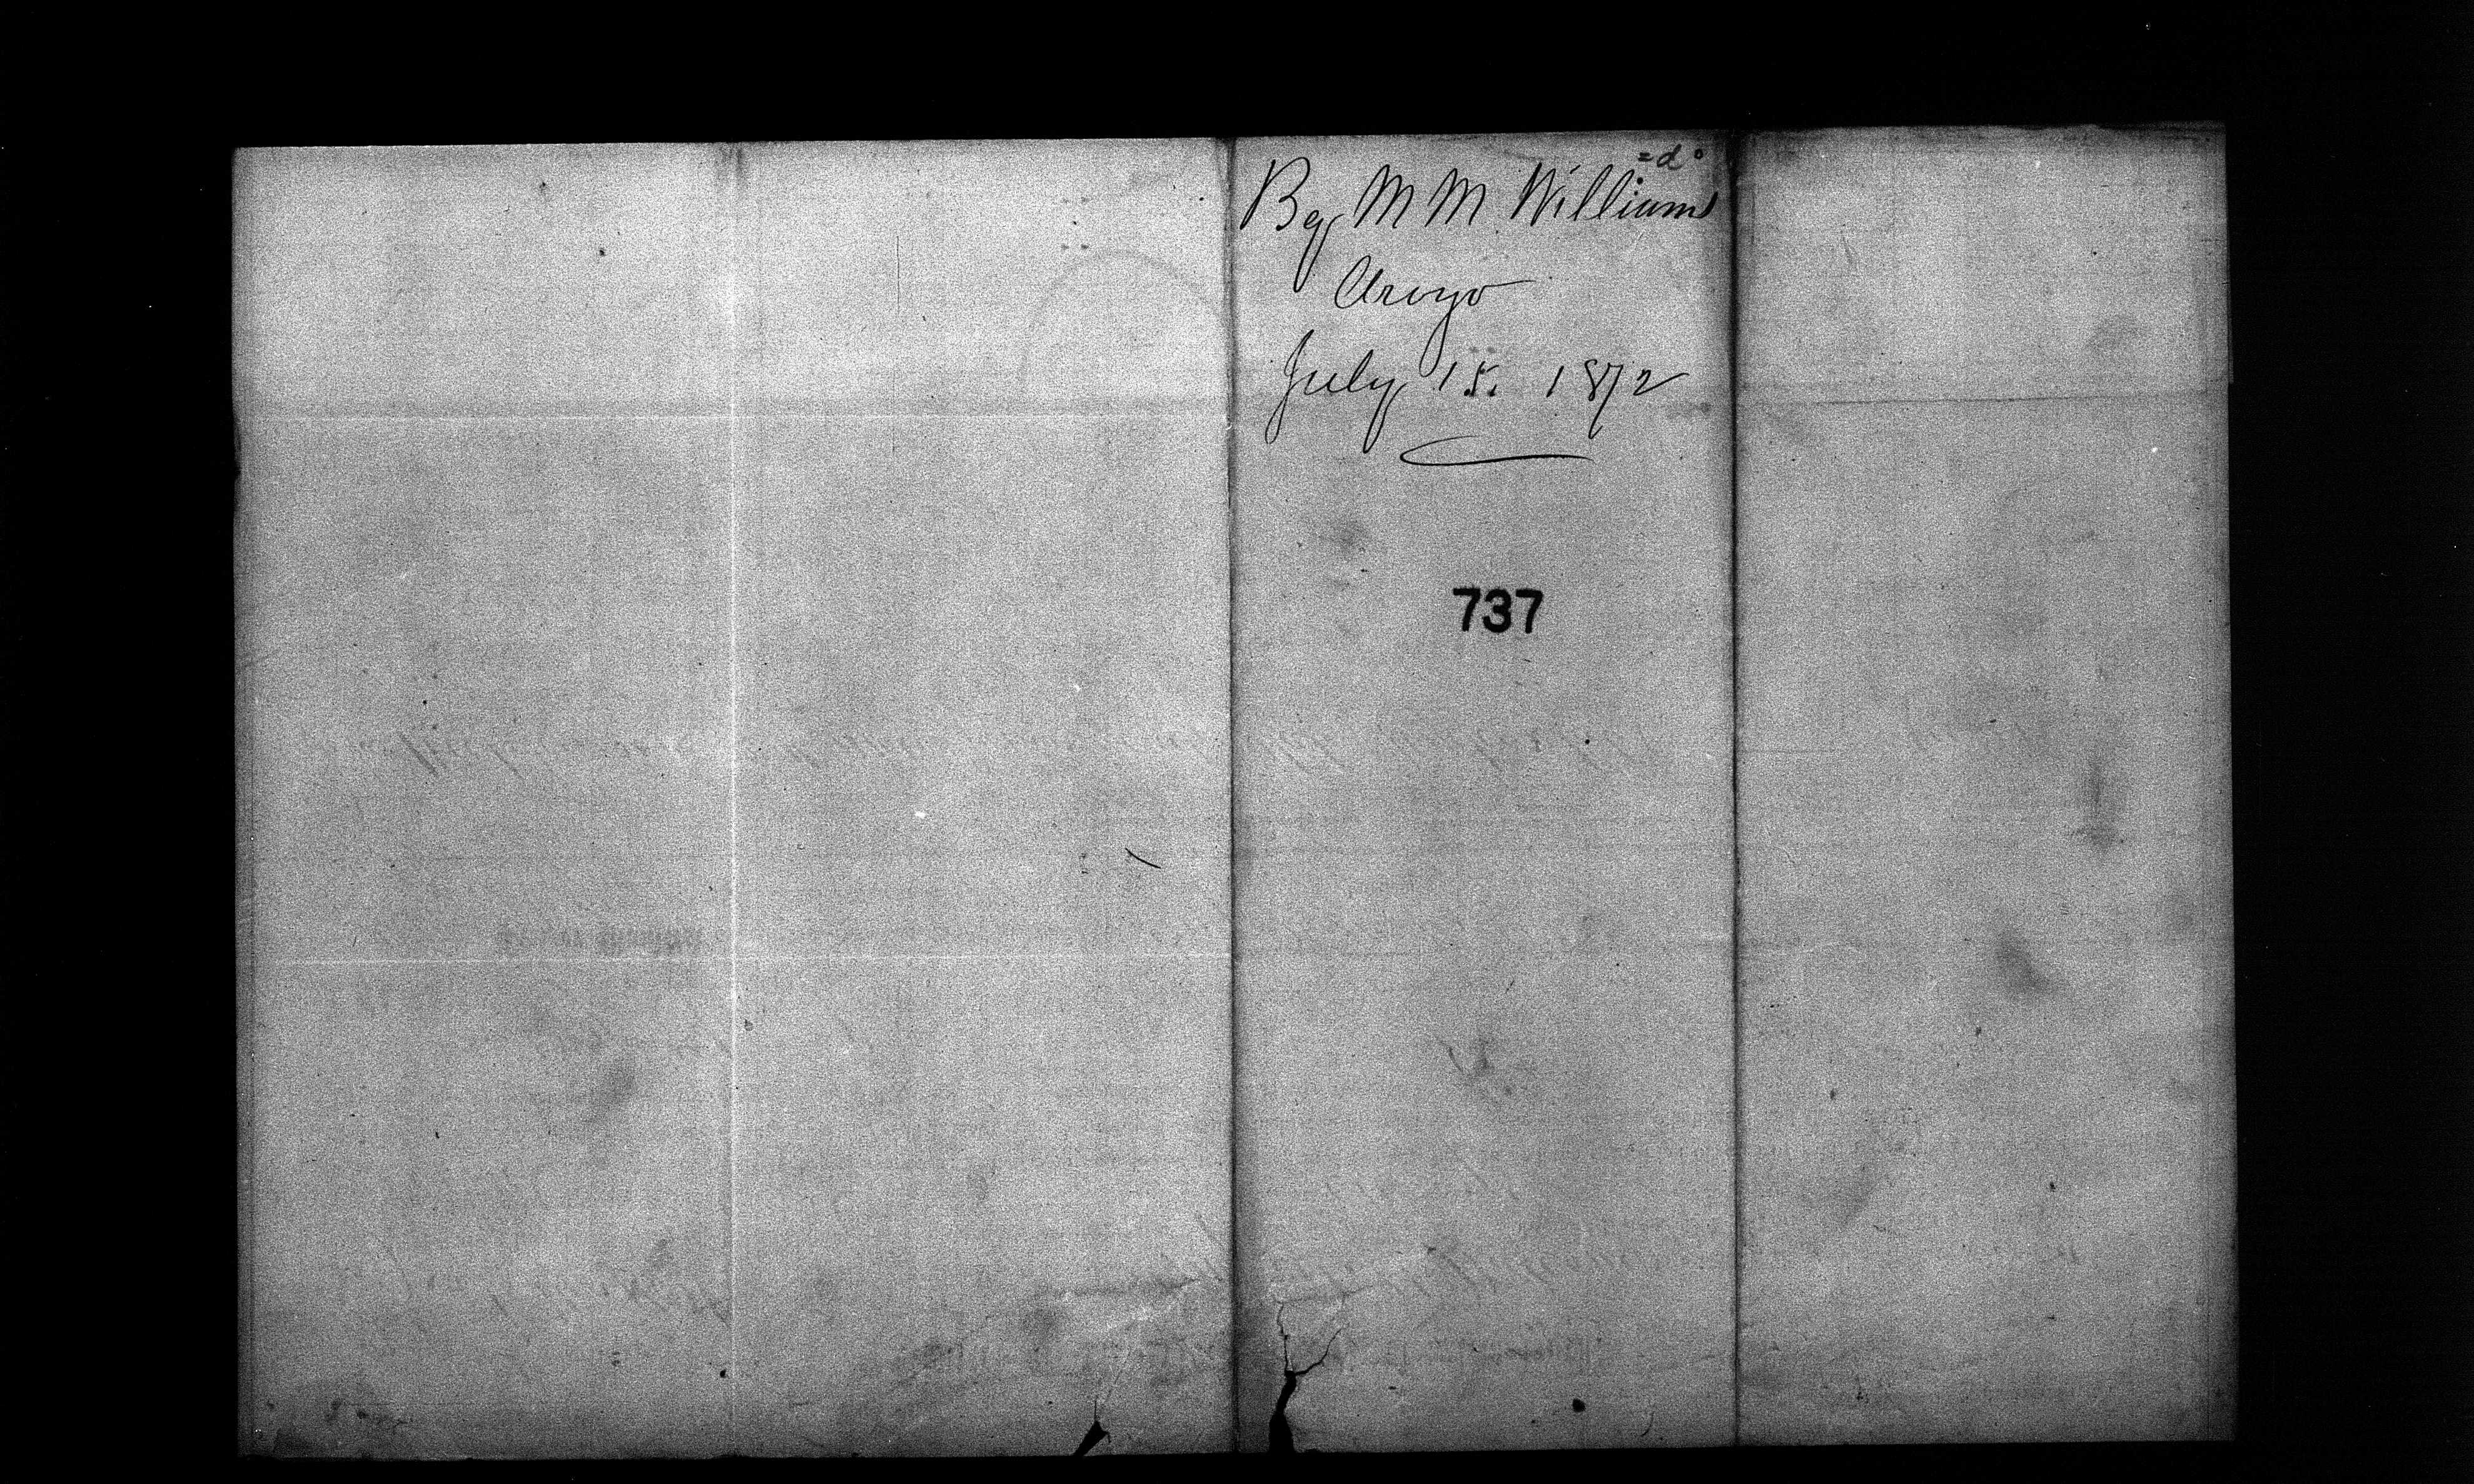 =do
Bg M M Williams
Aroyo
July 15. 1872
737